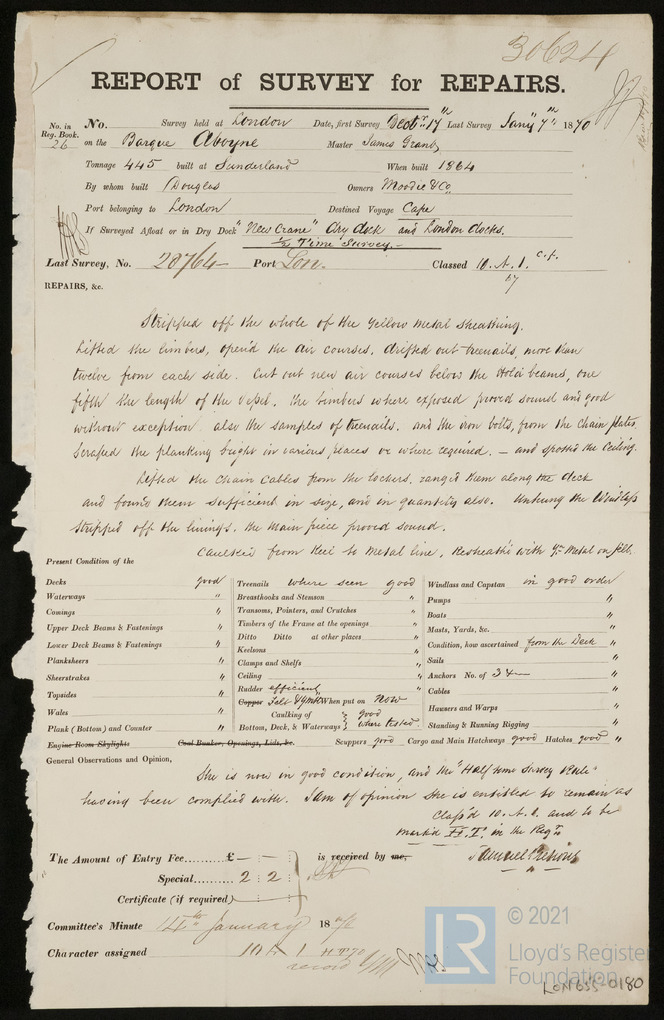 30624
REPORT of SURVEY for REPAIRS.
No. in Reg. Book. 26
No. Survey held at London Date, first Survey Decr. 17th Last Survey Jany 7th 1870
on the Barque Aboyne Master James Grant
Tonnage 445 built at Sunderland When built 1864
By whom built Douglas Owners Moodie & Co
Port belonging to London Destined Voyage Cape
If Surveyed Afloat or in Dry Dock "New Crane" Dry dock and London docks.
½ Time Survey.-
Last Survey, No. 20764 Port Lon. Classed 10.A.1. c.f.
REPAIRS, &c.
Stripped off the whole of the Yellow Metal Sheathing.
Lifted the limbers, open'd the air courses, drifted out treenails, more than
twelve from each side. Cut out new air courses below the Hold beams, one
fifth the length of the Vessel. The timbers where exposed proved sound and good
without exception. also the samples of treenails. and the iron bolts, from the Chain plates.
Scraped the planking bright in various places or where required. — and spotted the Ceiling.
Lifted the Chain Cables from the lockers, ranged them along the deck
and found them sufficient in size, and in quantity also. Unhung the Windlass
stripped off the linings, the main piece proved sound.
Caulked from Keel to Metal line, Resheath'd with Y. Metal on felt.
Present Condition of the
Decks good
Waterways "
Comings "
Upper Deck Beams & Fastenings "
Lower Deck Beams & Fastenings "
Planksheers "
Sheerstrakes "
Topsides "
Wales "
Plank (Bottom) and Counter "
Engine Room Skylights
Treenails where seen good
Breasthooks and Stemson "
Transoms, Pointers, and Crutches "
Timbers of the Frame at the openings "
Ditto Ditto at other places "
Keelsons "
Clamps and Shelfs "
Ceiling "
Rudder efficient
Copper Felt & YM When put on Now
Caulking of Bottom, Deck, & Waterways } good where tested
Coal Bunker, Openings, Lids, &c.
Scuppers good Cargo and Main Hatchways good Hatches good "
Windlass and Capstan in good order
Pumps "
Boats "
Masts, Yards, &c. "
Condition, how ascertained from the Deck "
Sails "
Anchors No. of 3 "
Cables "
Hawsers and Warps "
Standing & Running Rigging "
General Observations and Opinion,
She is now in good condition, and the "Half time Survey Rule"
having been complied with. I am of opinion she is entitled to remain as
Class'd 10.A.1. and to be
mark'd H.T. in the Regr.
The Amount of Entry Fee £ — : — is received by me,
Special 2 : 2 :
Certificate (if required) :
Samuel Pretious
Committee's Minute 14th January 1870
Character assigned 10 A 1 HT70
record
LR
© 2021
Lloyd's Register
Foundation
LON655-0180